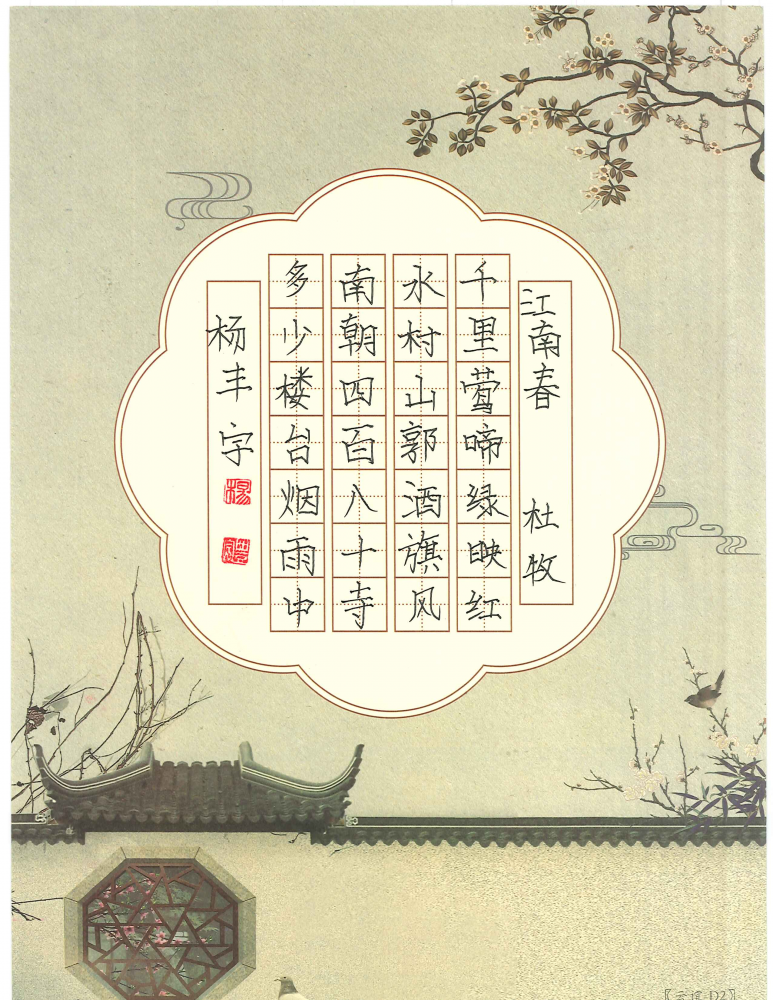 江南春 杜牧
千里莺啼绿映红
水村山郭酒旗风
南朝四百八十寺
多少楼台烟雨中
杨丰字